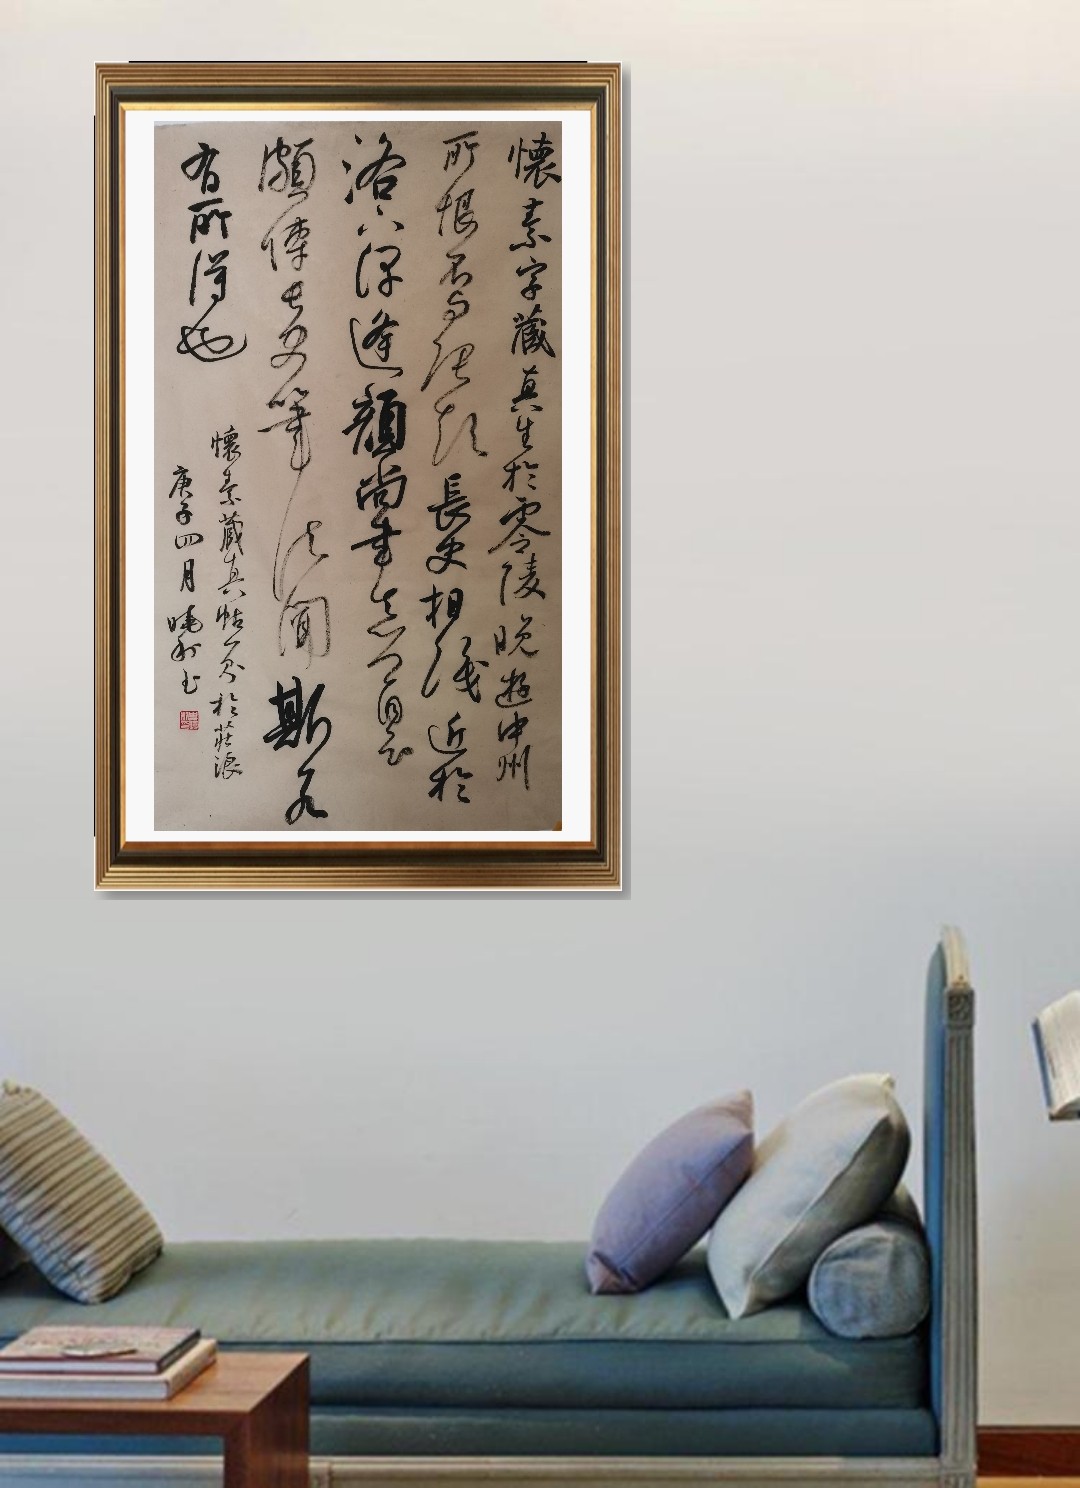 懷素字藏真生於零陵晚遊中州
所恨不與張顛長史相識近於
洛下得逢顏尚書真卿自云
頗傳長史筆法聞斯八
有所得也
懷素藏真帖一家於莊浪
庚子四月曉利書